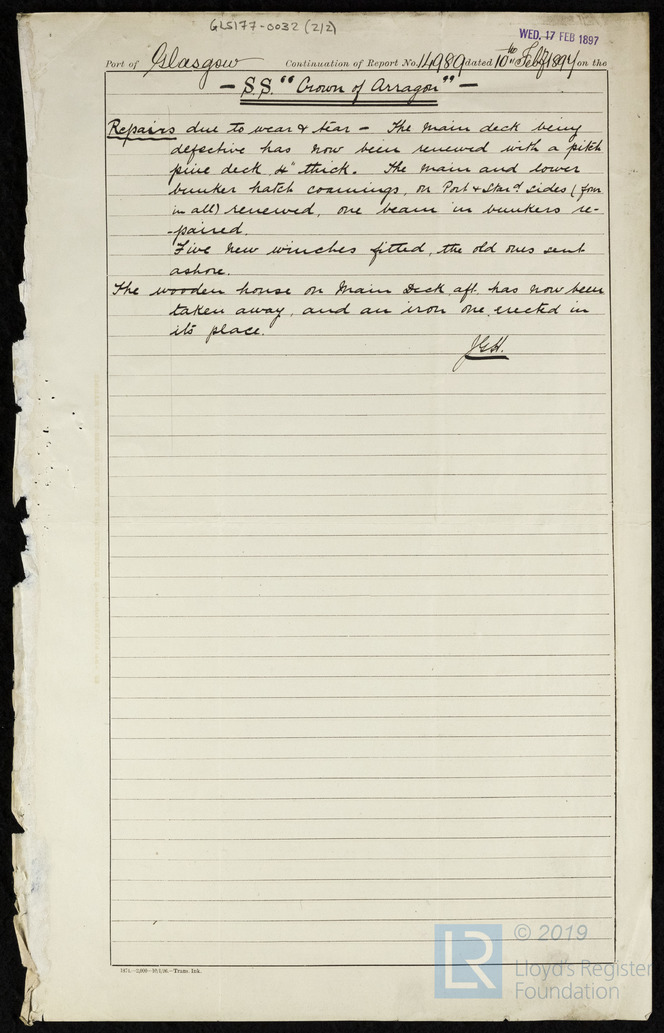 GLS177-0032 (2/2)
WED. 17 FEB 1897
Port of Glasgow Continuation of Report No. 14989 dated 10th Feby 1897 on the
- S.S. "Crown of Arragon" -
Repairs due to wear & tear - The Main deck being
defective has now been renewed with a pitch
pine deck 4" thick. The Main and lower
bunker hatch coamings, on Port & Stard sides (four
in all) renewed, one beam in bunkers re-
-paired.
Five New winches fitted, the old ones sent
ashore.
The wooden house on Main Deck aft has now been
taken away, and an iron one erected in
its place.
JGH.
1871.-2,000-10/1/96.-Trans. Ink.
LR © 2019
Lloyd's Register
Foundation